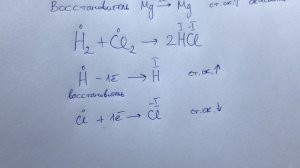 Восстановитель Mg → Mg ст.ок.↑
0 0 I -I
H₂ + Cl₂ → 2HCl
0 I
H - 1ē → H ст.ок.↑
восстановитель
0 -I
Cl + 1ē → Cl ст.ок.↓